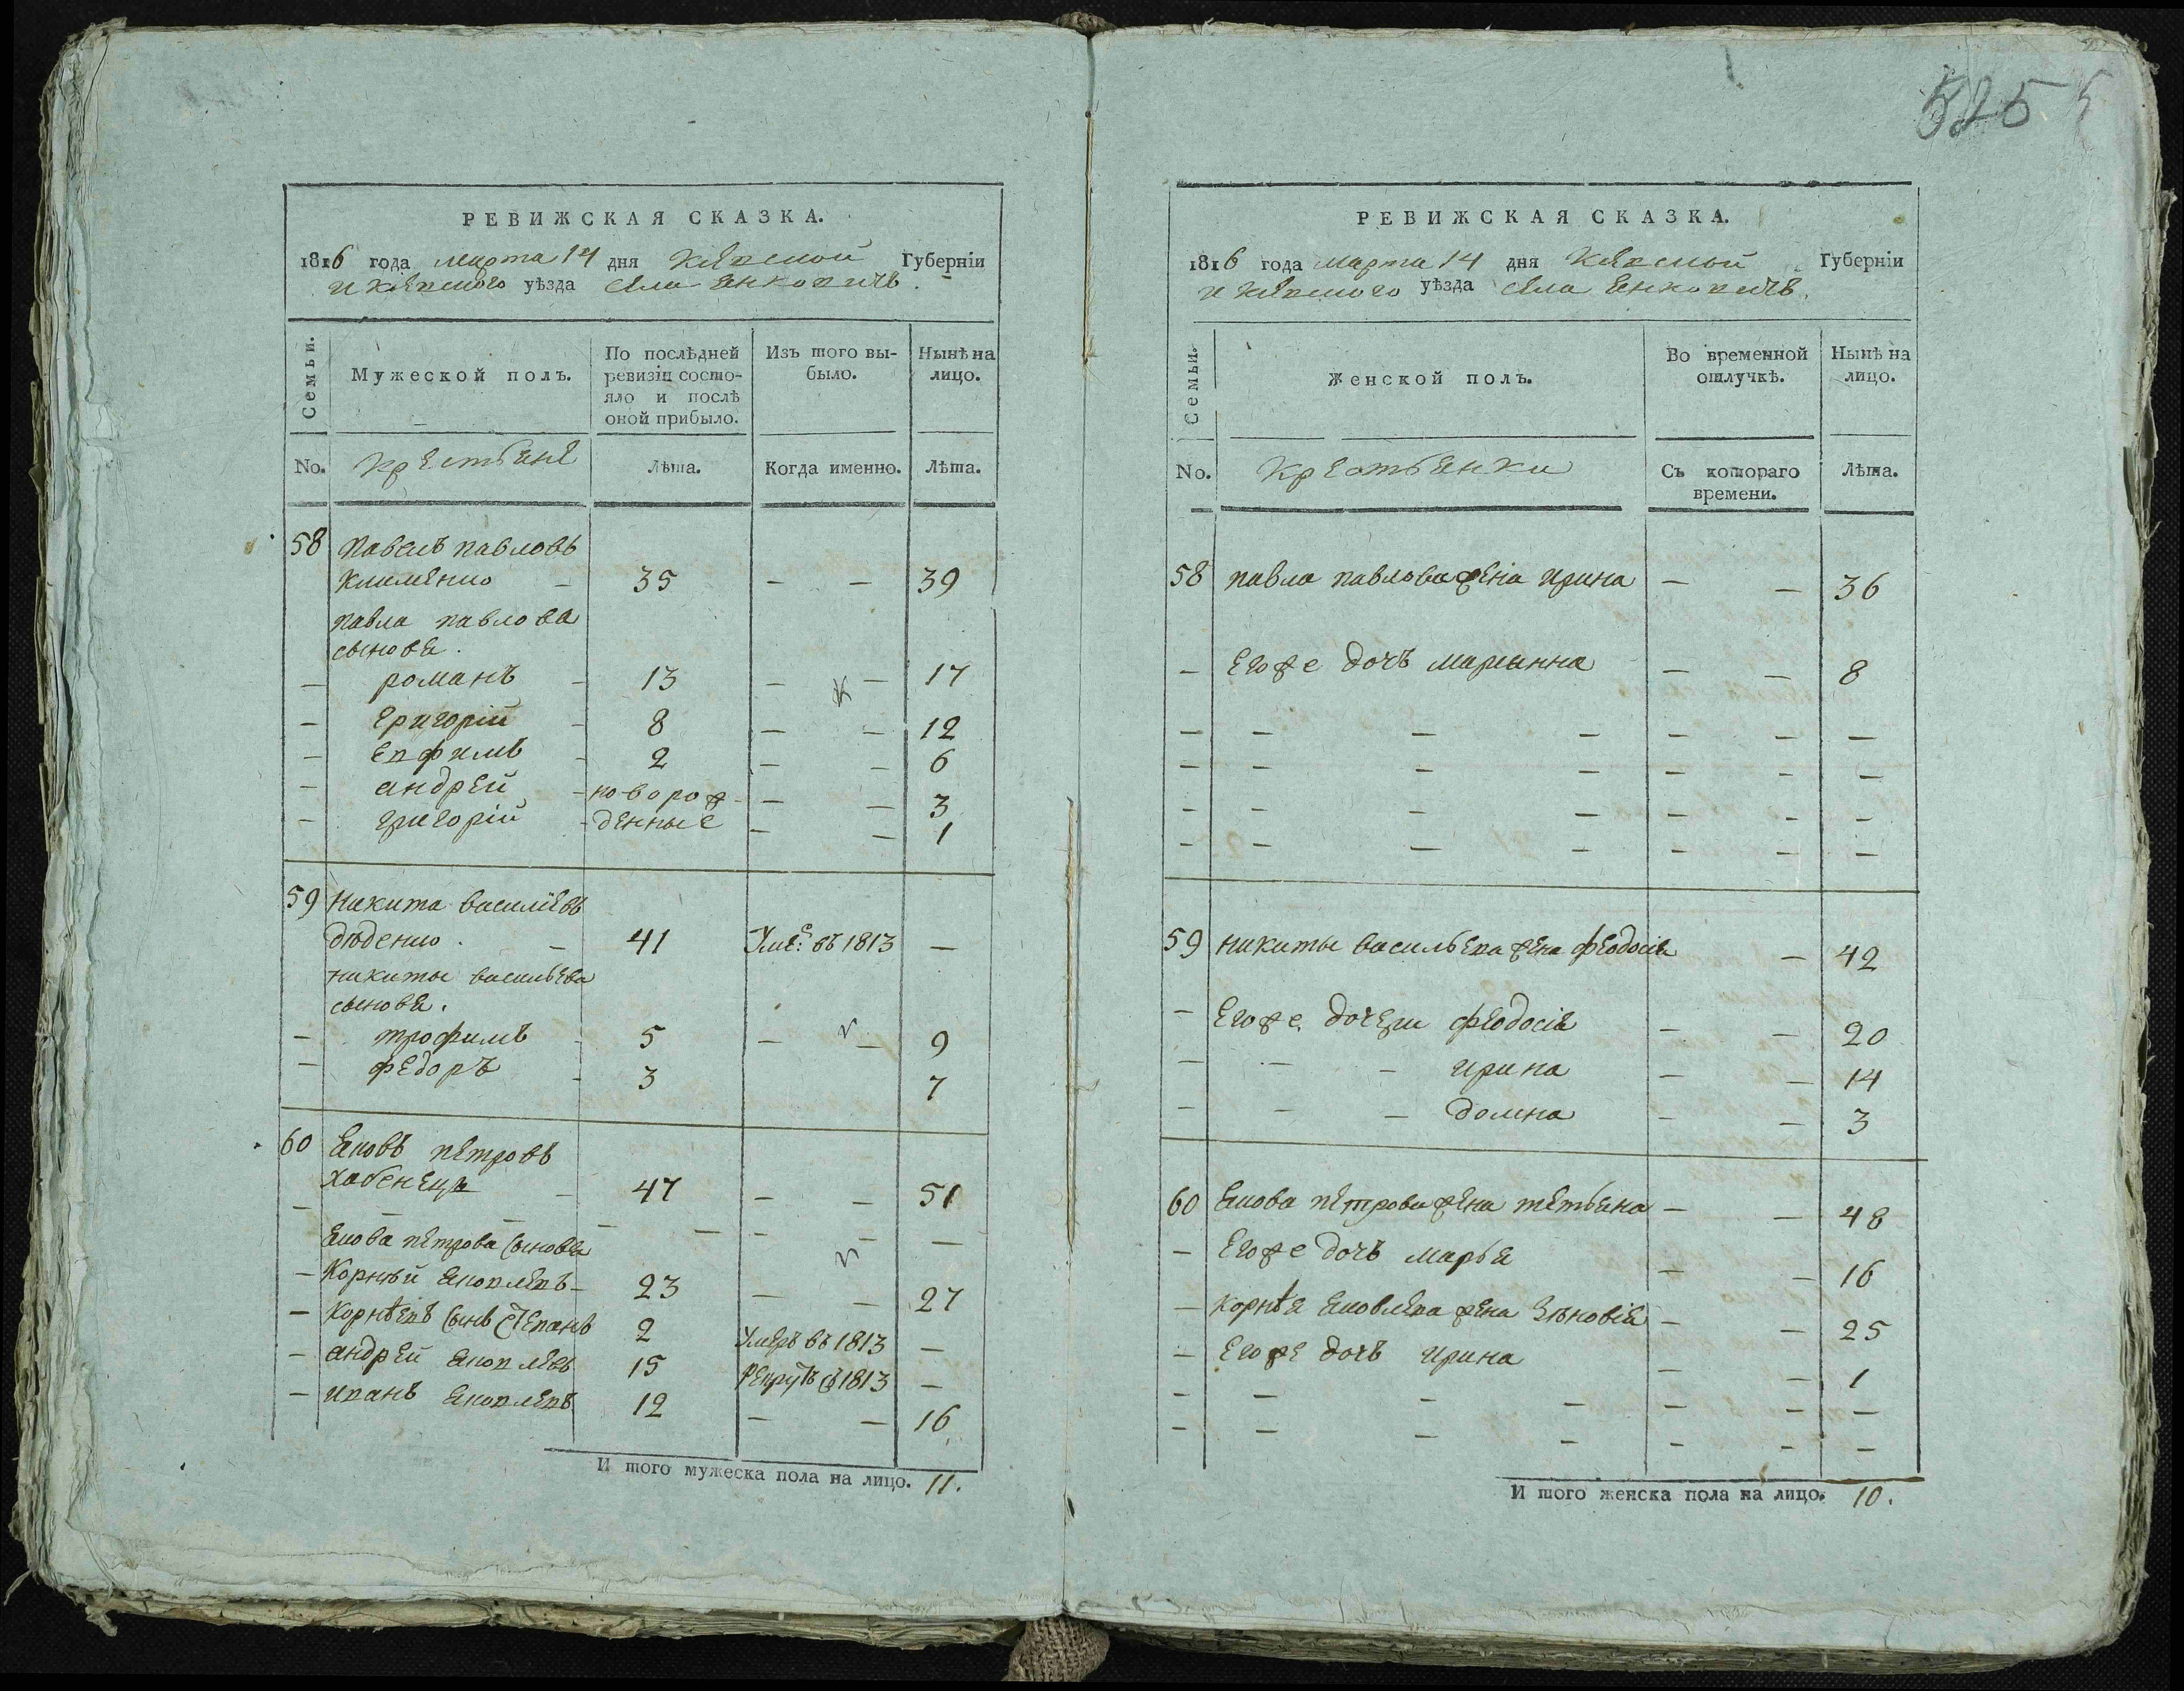 525
РЕВИЖСКАЯ СКАЗКА.
1816 года марта 14 дня Кіевской Губерніи
и Кіевского уѣзда села Янковичъ.
Семьи.
Мужеской полъ.
По послѣдней ревизіи состо-
яло и послѣ
оной прибыло.
Изъ того вы-
было.
Нынѣ на
лицо.
No. Крестьяне Лѣта. Когда именно. Лѣта.
58 Павелъ павловъ
Клименко — 35 — — 39
павла павлова
сыновя.
— романъ — 13 — — 17
— Григорій — 8 — — 12
— Евфимъ — 2 — — 6
— андрей — новорож — — 3
— григорій — денные — — 1
59 Никита василіевъ
дѣденко. — 41 Умерѣ въ 1813 —
никиты васильева
сыновя.
— трофимъ — 5 — — 9
— федоръ — 3 7
60 Яковъ петровъ
хабенецъ — 47 — — 51
— — — — — — — —
Якова петрова сыновя
— Корнѣй яковлевъ — 23 — — 27
— Корнѣевъ сынъ степанъ 2 Умеръ въ 1813 —
— андрей яковлевъ 15 Рекрутъ съ 1813 —
— иванъ яковлевъ 12 — — 16
И того мужеска пола на лицо. 11.
РЕВИЖСКАЯ СКАЗКА.
1816 года марта 14 дня Кіевской Губерніи
и Кіевского уѣзда села Янковичъ.
Семьи.
Женской полъ.
Во временной
отлучкѣ.
Нынѣ на
лицо.
No. Крестьянки Съ котораго
времени. Лѣта.
58 павла павлова жена ирина — — 36
— Егоже дочь марианна — — 8
— — — — — — —
— — — — — — —
— — — — — — —
— — — — — — —
59 никиты васильева жена феодосія — 42
— Егоже дочери феодосія — — 20
— — — ирина — — 14
— — — домна — — 3
60 Якова петрова жена тетьяна — — 48
— Егоже дочь марья — — 16
— корнѣя яковлева жена Зѣновія — — 25
— Егоже дочь ирина — — 1
— — — — — — —
— — — — — — —
И того женска пола на лицо. 10.